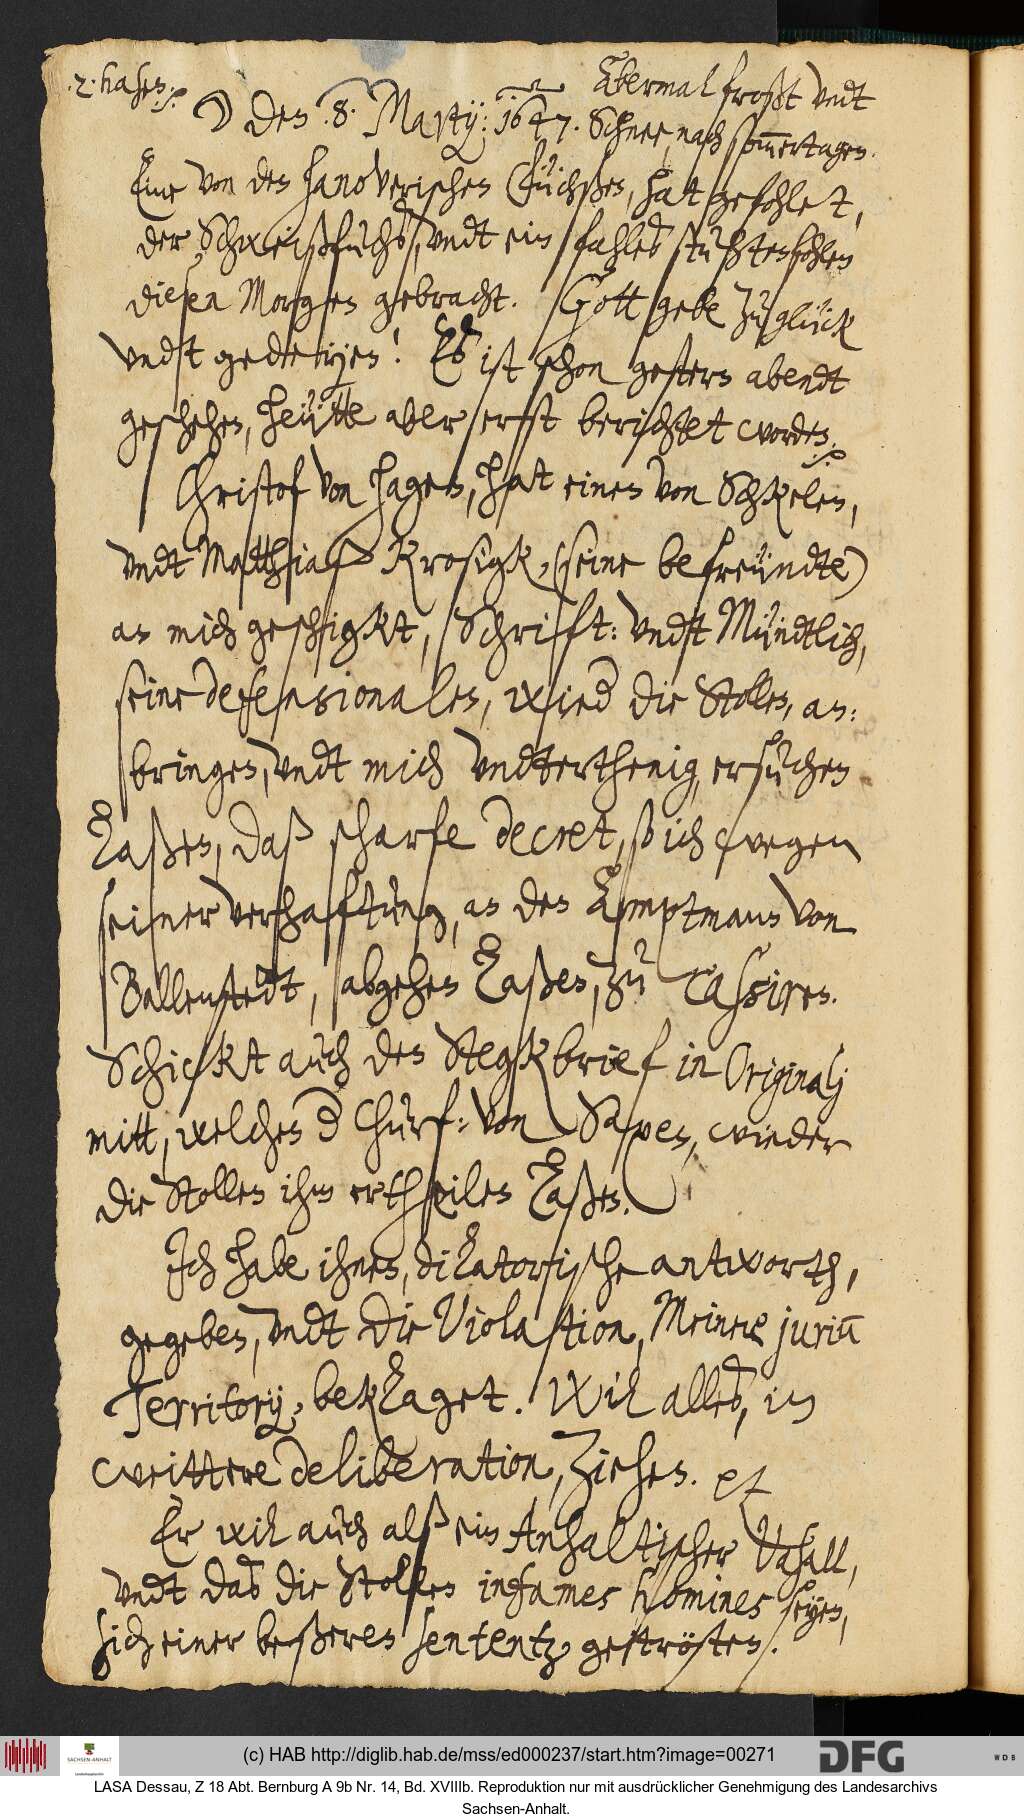 2. hasen.
☽ den .8. Martij: 1647. Abermal froßt vndt
Schnee, nach som̄ertagen.
Eine von den Hanoverischen Füchßen, hat gefohlet,
der Schweißfuchs, vndt ein fahles stuhtenfohlen
diesen Morgen gebracht. Gott gebe zu glück
vndt gedeyen! Es ist schon gestern abendt
geschehen, heütte aber erst berichtet worden.
Christof von Hagen, hat einen von Schkelen,
vndt Matthiaß Krosigk, (seine befreündte)
an mich geschigkt, Schrift: vndt Mündtlich,
seine defensionales, wied die Stollen, an:
bringen, vndt mich vndterthenig, ersuchen
Laßen, daß scharfe decret, ß ich wegen
seiner verhafftung, an den Amptmann von
Ballenstedt, abgehen Laßen, zu cassiren.
Schickt auch den Stegkbrief in Originalj
mitt, welchen d Churf: von Saxen, wieder
die Stollen ihm ertheilen Laßen.
Ich habe ihnen, dilatorische antworth,
gegeben, vndt die Violation, Meiner juriū
Territorij, beklaget. Wil alles, in
weittere deliberation, ziehen. et
Er wil auch alß ein Anhaltischer Vasall,
vndt das die Stollen infames homines seyen,
sich einer beßeren sententz, getrösten.
(c) HAB http://diglib.hab.de/mss/ed000237/start.htm?image=00271
SACHSEN-ANHALT
DFG
WDB
LASA Dessau, Z 18 Abt. Bernburg A 9b Nr. 14, Bd. XVIIIb. Reproduktion nur mit ausdrücklicher Genehmigung des Landesarchivs
Sachsen-Anhalt.